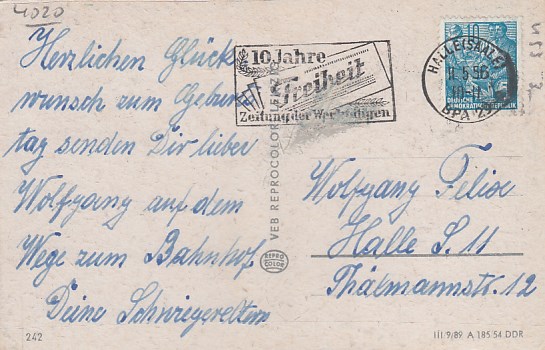 4020
Herzlichen Glück
wunsch zum Geburts
tag senden Dir lieber
Wolfgang auf dem
Wege zum Bahnhof
Deine Schwiegereltern
242
10 Jahre
Freiheit
Zeitung der Werktätigen
HALLE (SAALE)
5.56
BPA 2
10
DEUTSCHE
DEMOKRATISCHE REPUBLIK
VEB REPROCOLOR LEIPZIG
REPRO
COLOR
Wolfgang Felix
Halle S. 11
Thälmannstr. 12
III/9/89 A 185 54 DDR